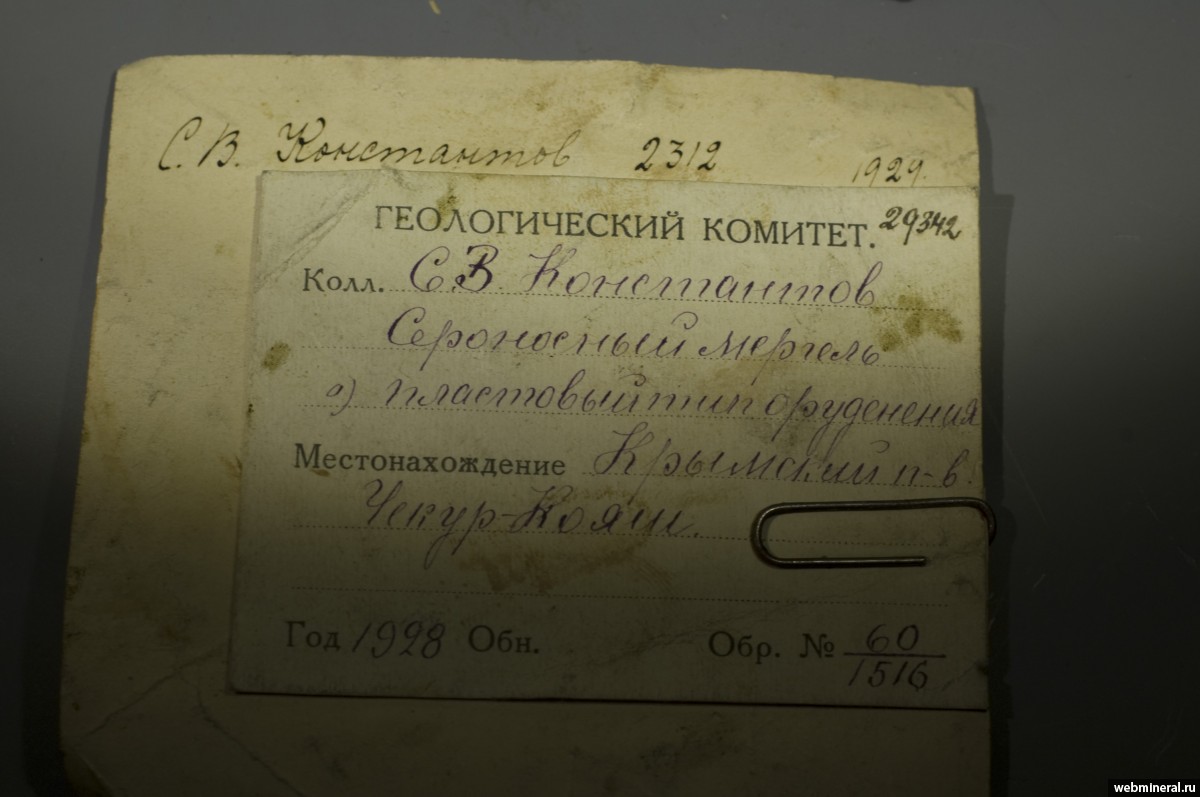 С. В. Константов 2312 1929.
ГЕОЛОГИЧЕСКИЙ КОМИТЕТ. 29342
Колл. С.В. Константов
Сероносный мергель
а) пластовый тип оруденения
Местонахождение Крымский п-в.
Чекур-Кояш.
Год 1928 Обн. Обр. № 60
1516
webmineral.ru